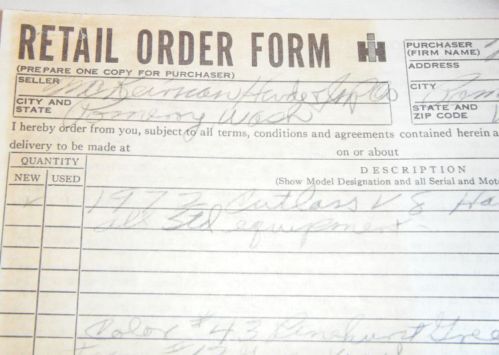 RETAIL ORDER FORM IH
PURCHASER
(FIRM NAME)
(PREPARE ONE COPY FOR PURCHASER)
ADDRESS
SELLER
CITY
CITY AND
STATE Pomeroy Wash
STATE AND
ZIP CODE
I hereby order from you, subject to all terms, conditions and agreements contained herein a
delivery to be made at on or about
QUANTITY
DESCRIPTION
NEW USED
(Show Model Designation and all Serial and Mot
1972 Cutlass V 8 Ha
all Std equipment
Color #43 Pinehurst Gree